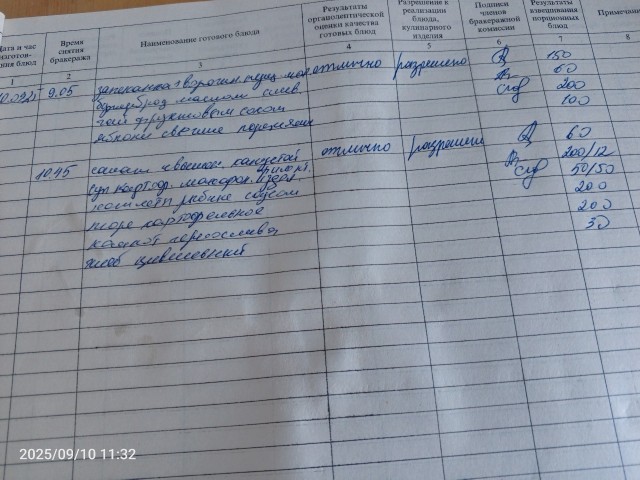 Дата и час изготов- ления блюд | Время снятия бракеража | Наименование готового блюда | Результаты органолептической оценки качества готовых блюд | Разрешение к реализации блюда, кулинарного изделия | Подписи членов бракеражной комиссии | Результаты взвешивания порционных блюд | Примечание
1 2 3 4 5 6 7 8
9.05 запеканка отлично разрешено 150
бутерброд маслом слив. 60
чай фруктовым соком 200
яблоки свежие порезаные 100
10.45 салат квашен. капустой отлично разрешено 60
суп картоф. макарон. изд. 200/12
котлеты рыбные соусом 50/50
пюре картофельное 200
компот 200
хлеб 30
2025/09/10 11:32